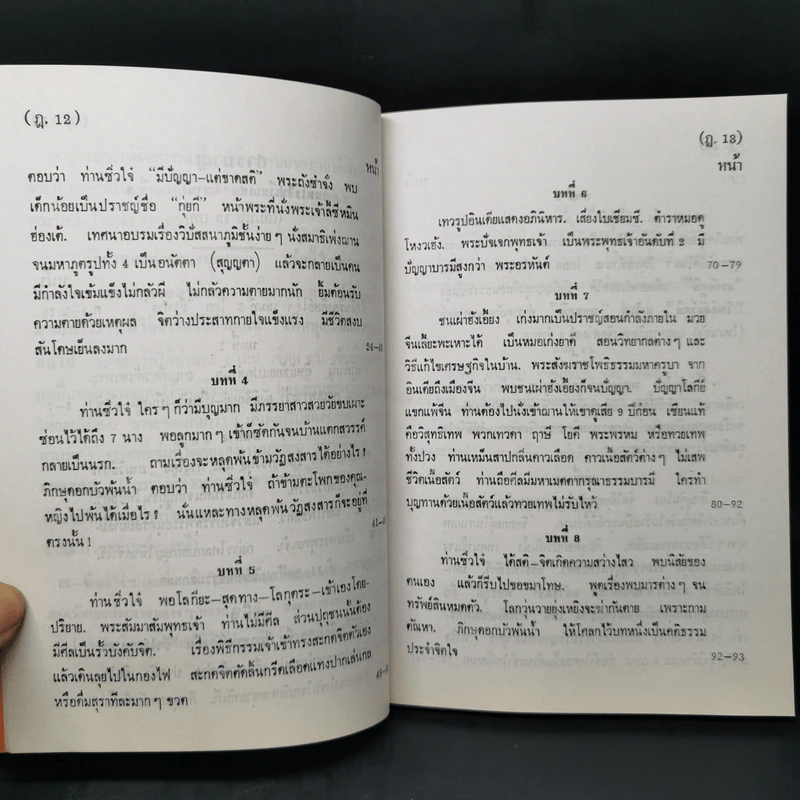 (ฎ. 12)
หน้า
ตอบว่า ท่านซิ่วใจ๋ “มีปัญญา—แต่ขาดสติ” พระถังซำจั๋ง พบ
เด็กน้อยเป็นปราชญ์ชื่อ “กุ่ยกี” หน้าพระที่นั่งพระเจ้าลี้ซีหมิน
ฮ่องเต้. เทศนาอบรมเรื่องวิปัสสนาภูมิชั้นง่าย ๆ นั่งสมาธิเพ่งฌาน
จนมหาภูตรูปทั้ง 4 เป็นอนัตตา (สุญญตา) แล้วจะกลายเป็นคน
มีกำลังใจเข้มแข็งไม่กลัวผี ไม่กลัวความตายมากนัก ยิ้มต้อนรับ
ความตายด้วยเหตุผล จิตว่างประสาทกายใจแข็งแรง มีชีวิตสงบ
สันโดษเย็นลงมาก
บทที่ 4
ท่านซิ่วใจ๋ ใคร ๆ ก็ว่ามีบุญมาก มีภรรยาสาวสวยวัยขบเผาะ
ซ่อนไว้ได้ถึง 7 นาง พอลูกมาก ๆ เข้าก็ซัดกันจนบ้านแตกสวรรค์
กลายเป็นนรก. ถามเรื่องจะหลุดพ้นข้ามวัฏสงสารได้อย่างไร ?
ภิกษุดอกบัวพ้นน้ำ ตอบว่า ท่านซิ่วใจ๋ ถ้าข้ามตะโพกของคุณ-
หญิงไปพ้นได้เมื่อไร ? นั่นแหละทางหลุดพ้นวัฏสงสารก็จะอยู่ที่
ตรงนั้น !
บทที่ 5
ท่านซิ่วใจ๋ พอโลกียะ—สุดทาง—โลกุตระ—เข้าเองโดย-
ปริยาย. พระสัมมาสัมพุทธเจ้า ท่านไม่มีศีล ส่วนปุถุชนนั้นต้อง
มีศีลเป็นรั้วบังคับจิต. เรื่องพิธีกรรมเจ้าเข้าทรงสะกดจิตตัวเอง
แล้วเดินลุยไปในกองไฟ สะกดจิตตัดลิ้นกรีดเลือดแทงปากเล่นกล
หรือดื่มสุราทีละมาก ๆ ขวด
(ฎ. 13)
หน้า
บทที่ 6
เทวรูปอินเดียแสดงอภินิหาร. เสี่ยงใบเซียมซี. ตำราหมอดู
โหงวเฮ้ง. พระปัจเจกพุทธเจ้า เป็นพระพุทธเจ้าอันดับที่ 2 มี
ปัญญาบารมีสูงกว่า พระอรหันต์ 70—79
บทที่ 7
ชนเผ่าฮังเอี้ยง เก่งมากเป็นปราชญ์สอนกำลังภายใน มวย
จีนเลี้ยะพะเหาะได้ เป็นหมอเก่งยาดี สอนวิทยากลต่าง ๆ และ
วิธีแก้ไขเศรษฐกิจในบ้าน. พระสังฆราชโพธิธรรมมหาครูบา จาก
อินเดียถึงเมืองจีน พบชนเผ่าฮังเอี้ยงก็จนปัญญา. ปัญญาโลกีย์
แขกแพ้จีน ท่านต้องไปนั่งเข้าฌานให้เขาดูเสีย 9 ปีก่อน เซียนแท้
คือวิสุทธิเทพ พวกเทวดา ฤาษี โยคี พระพรหม หรือทวยเทพ
ทั้งปวง ท่านเหม็นสาปกลิ่นคาวเลือด คาวเนื้อสัตว์ต่าง ๆ ไม่เสพ
ชีวิตเนื้อสัตว์ ท่านถือศีลมีมหาเมตตากรุณาธรรมบารมี ใครทำ
บุญทานด้วยเนื้อสัตว์แล้วทวยเทพไม่รับไหว้ 80—92
บทที่ 8
ท่านซิ่วใจ๋ ได้สติ—จิตเกิดความสว่างไสว พบนิสัยของ
ตนเอง แล้วก็รีบไปขอขมาโทษ. พูดเรื่องพบมารต่าง ๆ จน
ทรัพย์สินหมดตัว. โลกวุ่นวายยุ่งเหยิงจะฆ่ากันตาย เพราะกาม
ตัณหา. ภิกษุดอกบัวพ้นน้ำ ให้โศลกไว้บทหนึ่งเป็นคติธรรม
ประจำจิตใจ 92—93